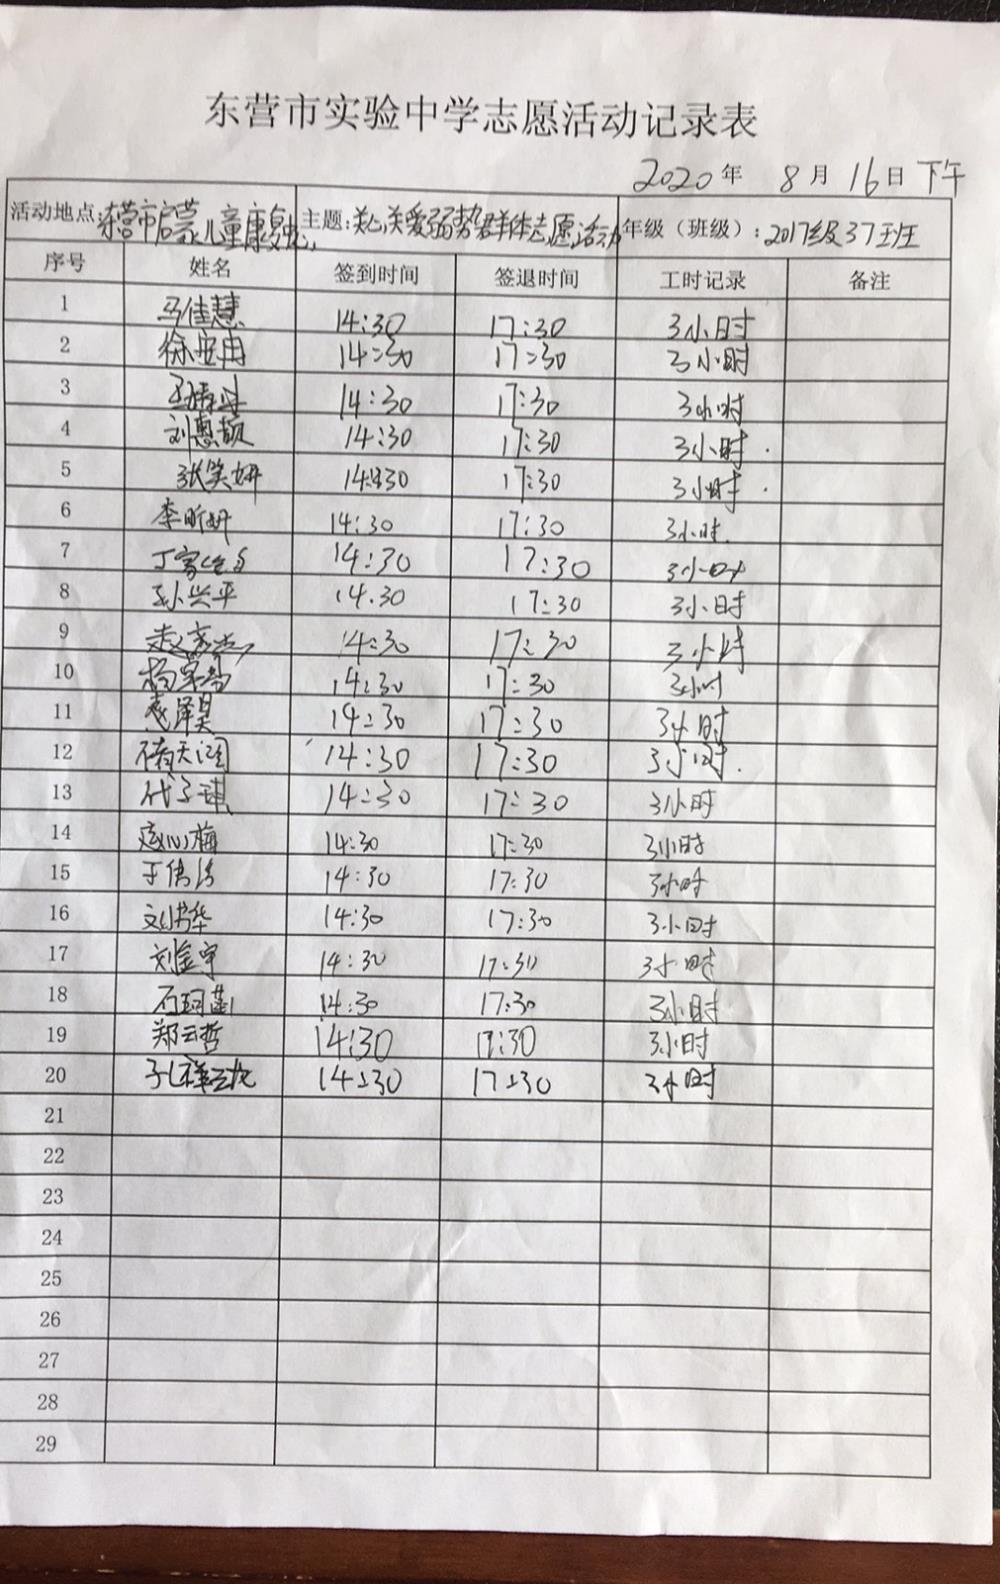 东营市实验中学志愿活动记录表
2020年 8月16日下午
活动地点:东营市启蒙儿童康复中心 主题:关心关爱弱势群体志愿活动 年级（班级）:2017级37班
序号 姓名 签到时间 签退时间 工时记录 备注
1 马佳慧 14:30 17:30 3小时
2 徐安冉 14:30 17:30 3小时
3 14:30 17:30 3小时
4 刘惠颖 14:30 17:30 3小时
5 张笑妍 14:30 17:30 3小时
6 李昕妍 14:30 17:30 3小时
7 14:30 17:30 3小时
8 孙兴平 14.30 17:30 3小时
9 14:30 17:30 3小时
10 14:30 17:30 3小时
11 14:30 17:30 3小时
12 14:30 17:30 3小时
13 代子琪 14:30 17:30 3小时
14 14:30 17:30 3小时
15 14:30 17:30 3小时
16 14:30 17:30 3小时
17 刘金宇 14:30 17:30 3小时
18 14:30 17:30 3小时
19 郑云哲 14:30 17:30 3小时
20 孔祥龙 14:30 17:30 3小时
21
22
23
24
25
26
27
28
29